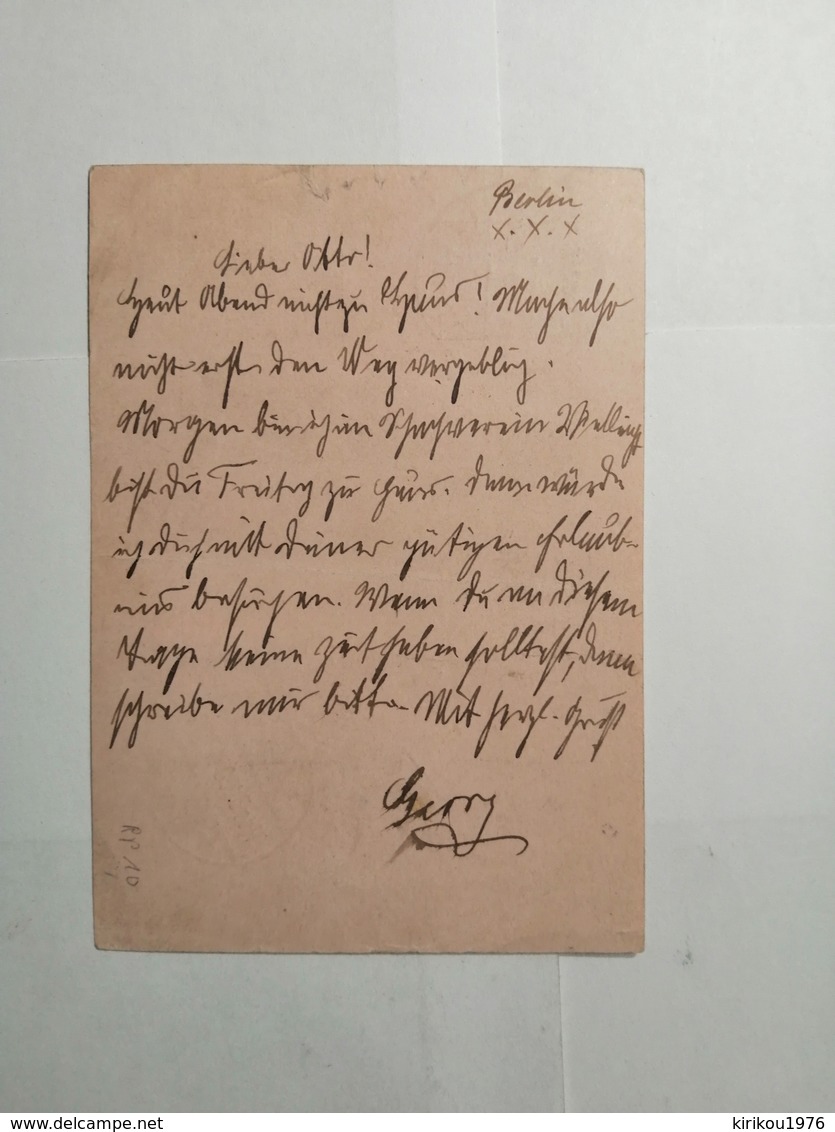 Berlin
X. X. X
Lieber Otto!
Heut Abend nicht zu Haus! Mache also
nicht erst den Weg vergeblich.
Morgen bin ich im Schachverein Vielleicht
bist Du Freitag zu Haus. Dann würde
ich Dich mit Deiner gütigen Erlaub-
nis besuchen. Wenn Du an diesem
Tage keine Zeit haben solltest, dann
schreibe mir bitte. Mit herzl. Gruß
Georg
RP 10
delcampe.net
kirikou1976